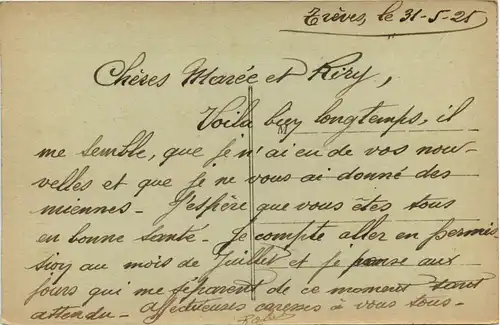 Trèves, le 31-5-25
Chères Marée et Kiry,
Voilà bien longtemps, il
me semble, que je n'ai eu de vos nou-
velles et que je ne vous ai donné des
miennes - J'espère que vous êtes tous
en bonne santé - Je compte aller en permis
sion au mois de Juillet et je pense aux
jours qui me séparent de ce moment tant
attendu - Affectueuses caresses à vous tous -